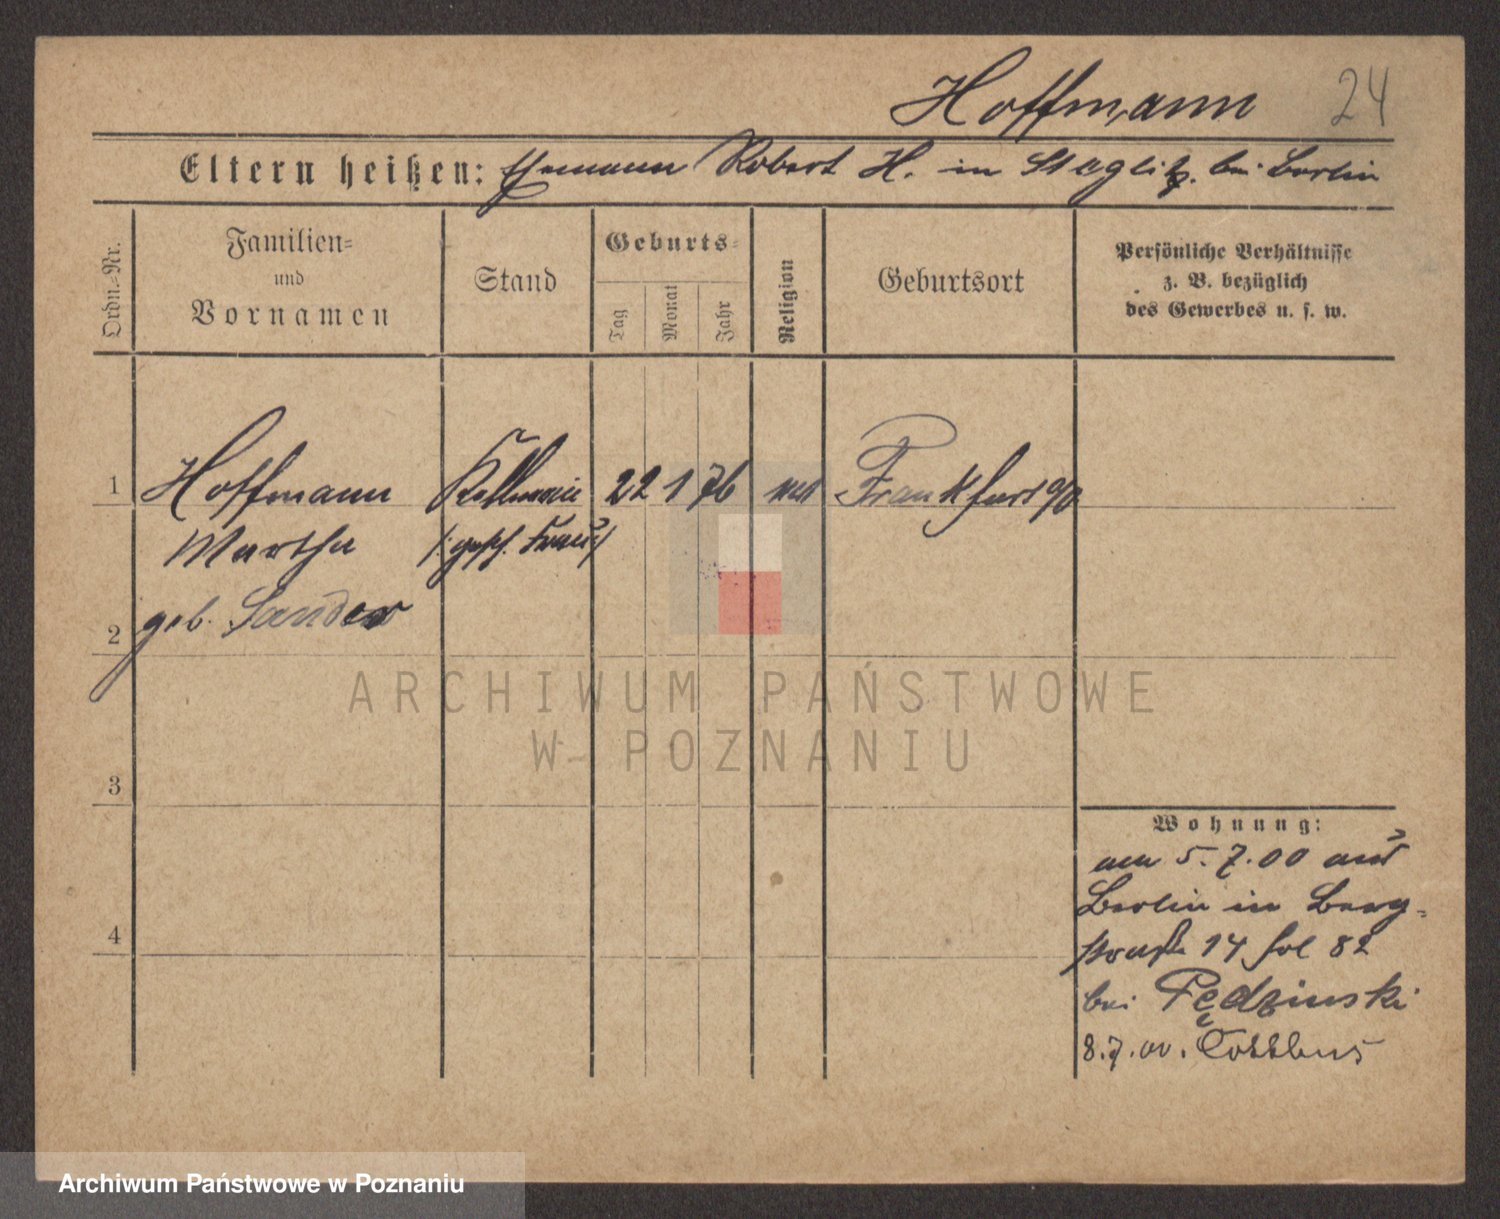 Hoffmann 24
Eltern heißen: Ehemann Robert H. in Steglitz bei Berlin
Ordn.-Nr.
Familien-
und
Vornamen
Stand
Geburts-
Tag
Monat
Jahr
Religion
Geburtsort
Persönliche Verhältnisse
z. B. bezüglich
des Gewerbes u. s. w.
1 Hoffmann Kellnerin 22 1 76 Frankfurt a/O
Martha /: gesch. Frau :/
geb. Sander
2
3
4
Wohnung:
am 5.7.00 aus
Berlin in Berg-
straße 14 fol 82
bei Pędzinski
8.7.00. Cottbus
ARCHIWUM PAŃSTWOWE
W POZNANIU
Archiwum Państwowe w Poznaniu